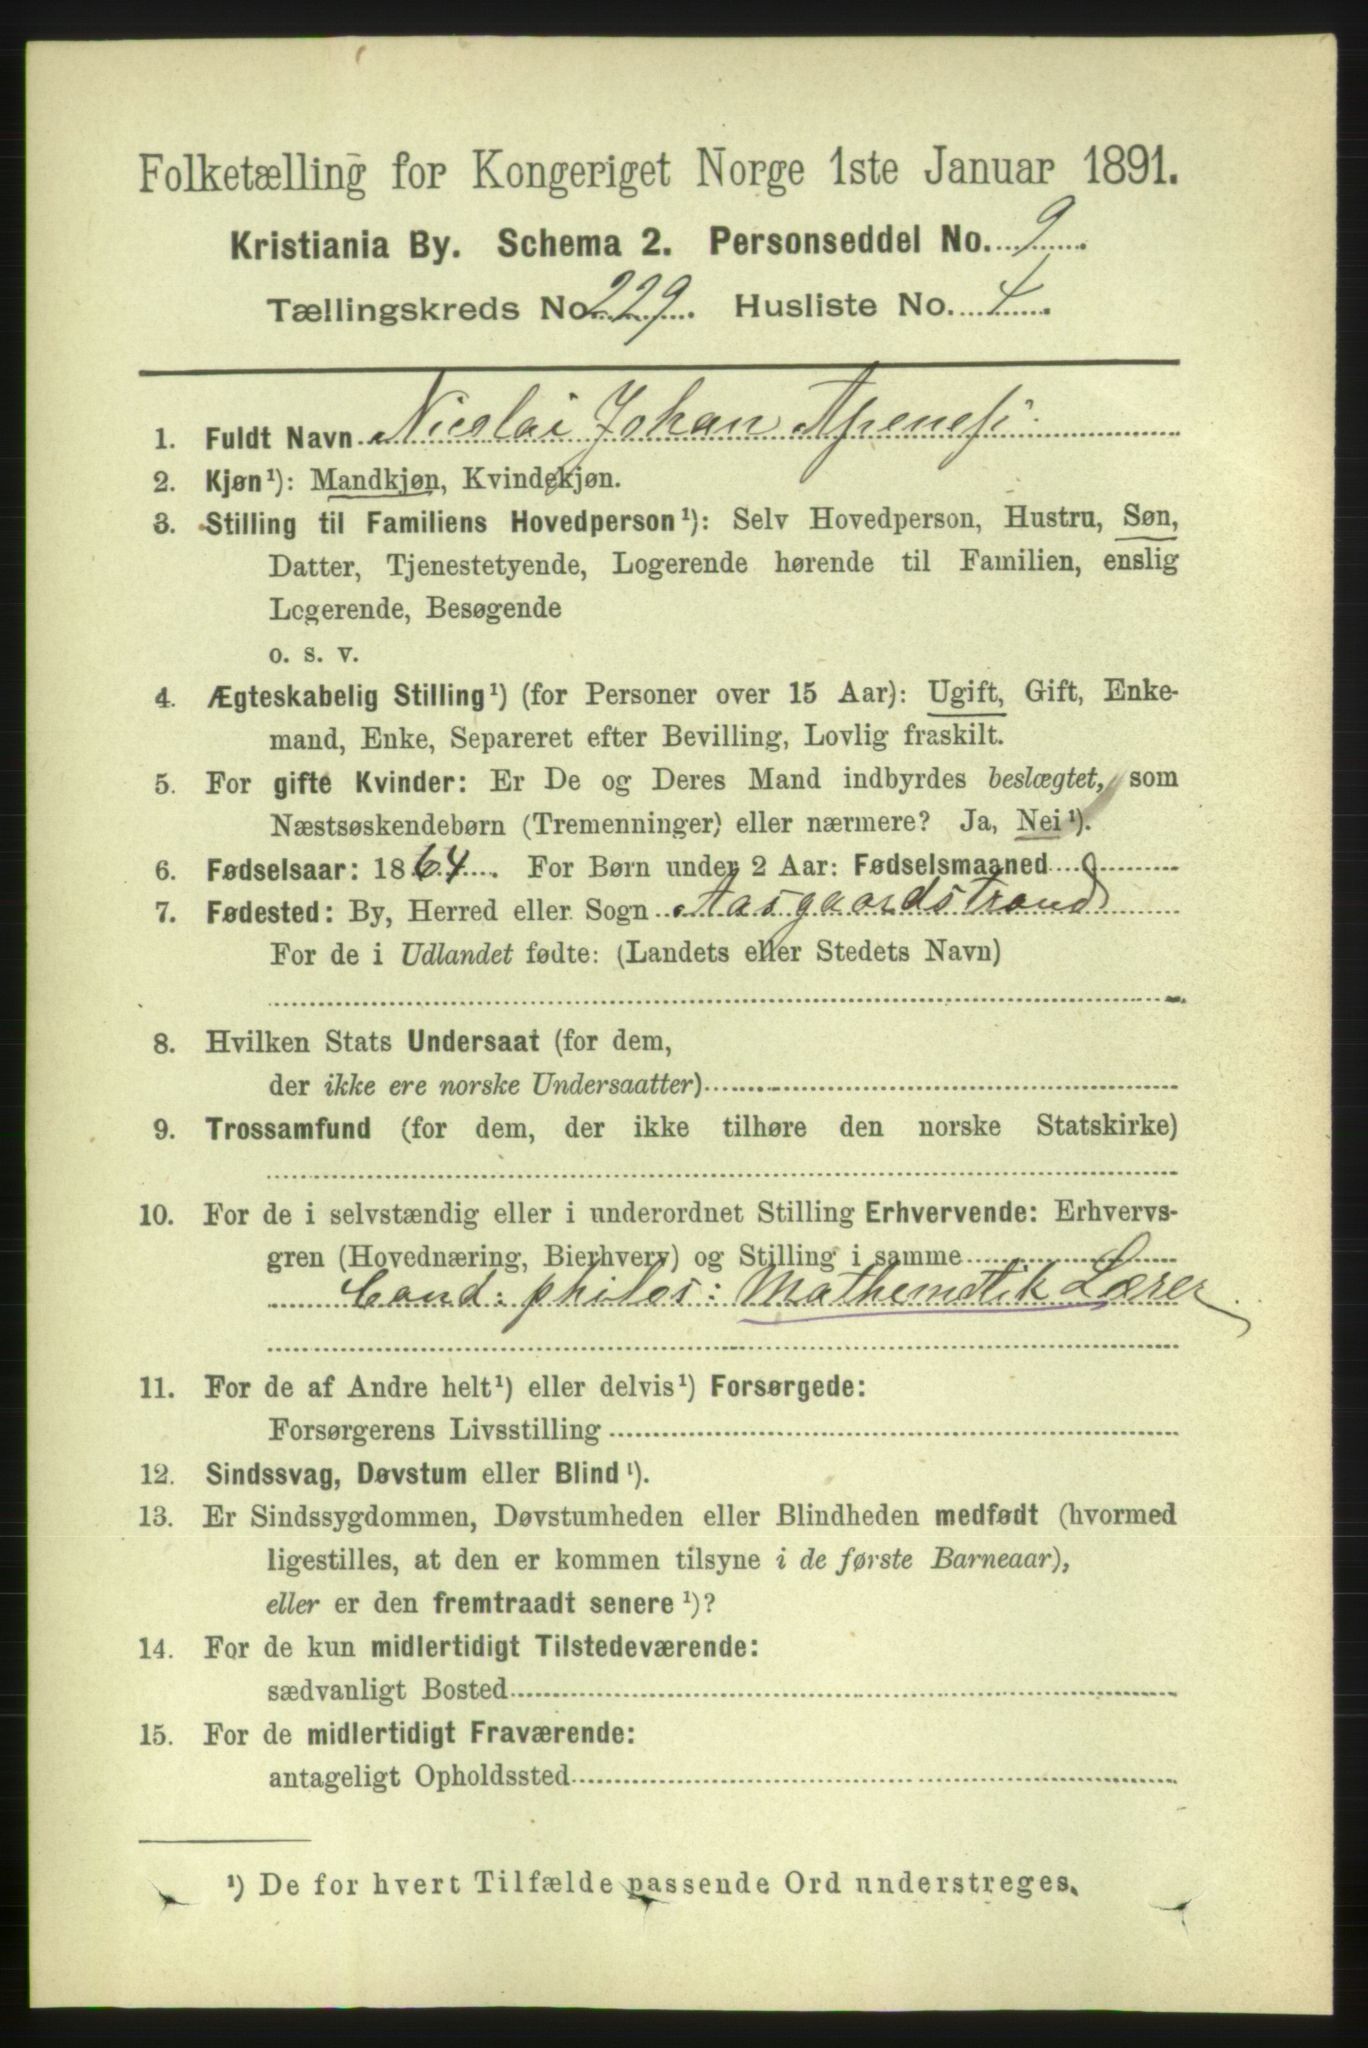 Folketælling for Kongeriget Norge 1ste Januar 1891.
Kristiania By. Schema 2. Personseddel No. 9
Tællingskreds No. 229. Husliste No. 4.
1. Fuldt Navn Nicolai Johan Apenesi
2. Kjøn¹): Mandkjøn, Kvindekjøn.
3. Stilling til Familiens Hovedperson¹): Selv Hovedperson, Hustru, Søn,
Datter, Tjenestetyende, Logerende hørende til Familien, enslig
Logerende, Besøgende
o. s. v.
4. Ægteskabelig Stilling¹) (for Personer over 15 Aar): Ugift, Gift, Enke-
mand, Enke, Separeret efter Bevilling, Lovlig fraskilt.
5. For gifte Kvinder: Er De og Deres Mand indbyrdes beslægtet, som
Næstsøskendebørn (Tremenninger) eller nærmere? Ja, Nei¹).
6. Fødselsaar: 1864. For Børn under 2 Aar: Fødselsmaaned
7. Fødested: By, Herred eller Sogn Aasgaardstrand
For de i Udlandet fødte: (Landets eller Stedets Navn)
8. Hvilken Stats Undersaat (for dem,
der ikke ere norske Undersaatter)
9. Trossamfund (for dem, der ikke tilhøre den norske Statskirke)
10. For de i selvstændig eller i underordnet Stilling Erhvervende: Erhvervs-
gren (Hovednæring, Bierhverv) og Stilling i samme
Cand: philos: Mathematik Lærer
11. For de af Andre helt¹) eller delvis¹) Forsørgede:
Forsørgerens Livsstilling
12. Sindssvag, Døvstum eller Blind¹).
13. Er Sindssygdommen, Døvstumheden eller Blindheden medfødt (hvormed
ligestilles, at den er kommen tilsyne i de første Barneaar),
eller er den fremtraadt senere¹)?
14. For de kun midlertidigt Tilstedeværende:
sædvanligt Bosted
15. For de midlertidigt Fraværende:
antageligt Opholdssted
¹) De for hvert Tilfælde passende Ord understreges.